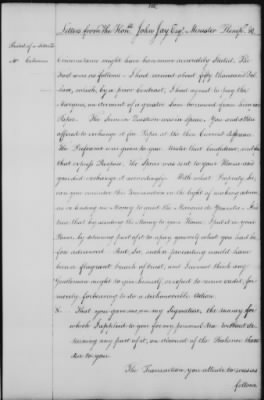 Letters from the Honble John Jay Esqr Minister Plenpo &c
Mr Cabarrus
convenience might have been more accurately Stated. The
fact was as follows — I had secured about fifty thousand Dol
lars, which, by a prior Contract, I had agreed to pay this
in discount of a greater Sum borrowed from him in
Paper. The Sum in Question was in specie. You and others
offered to exchange it for Paper at the then Current difference
The Preference was given to you. Under that Confidence, and for
that express Purpose, the Specie was sent to your House and
you did exchange it accordingly. With what Propriety, Sir,
can you consider this Transaction in the light of making advan
ces or lending me Money to assist the Marquis de Yranda. It is
true that by sending the Money to your House I put it in your
Power by detaining part of it to repay yourself what you had be
fore advanced. But Sir, such a proceeding would have
been a flagrant breach of trust, and I cannot think any
Gentleman ought to give himself, or expect to receive credit for
merely forbearing to do a dishonorable Action.
8. That you gave me, on my Signature, the money for
which I applied to you for my personal Use without de
taining any part of it on account of the Balance then
due to you.
The Transaction you allude to was as
follows